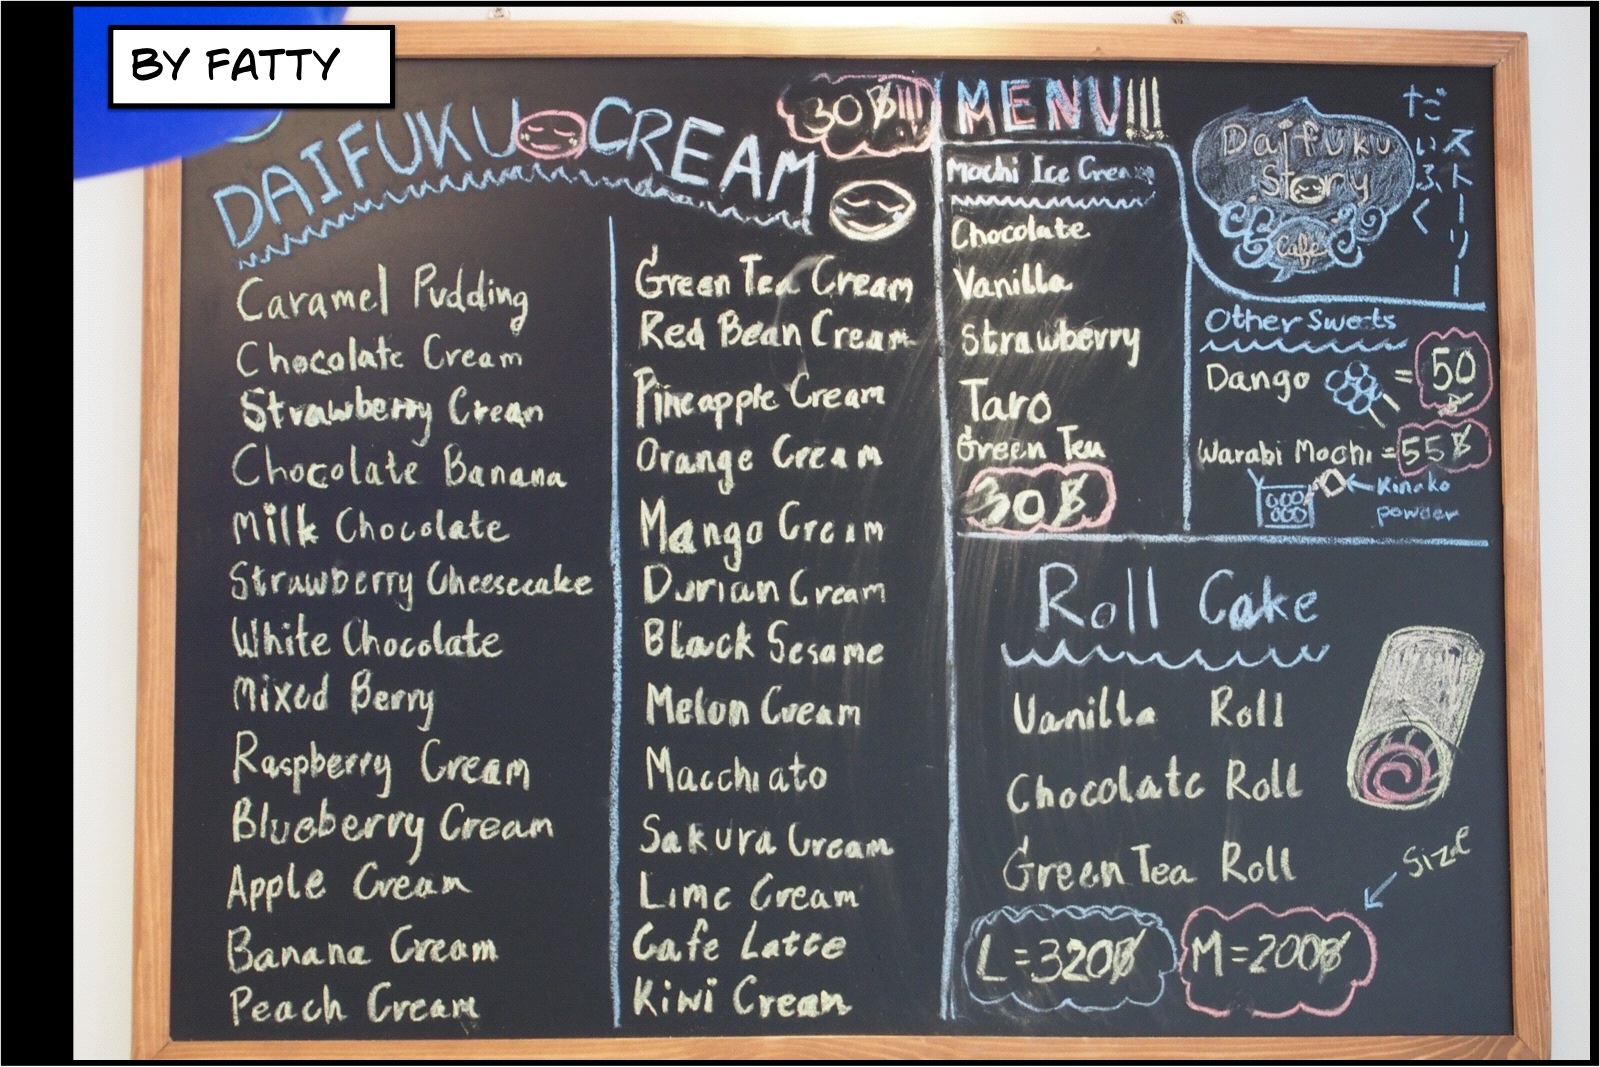 BY FATTY
DAIFUKU CREAM
30฿!!!
Caramel Pudding
Chocolate Cream
Strawberry Cream
Chocolate Banana
Milk Chocolate
Strawberry Cheesecake
White Chocolate
Mixed Berry
Raspberry Cream
Blueberry Cream
Apple Cream
Banana Cream
Peach Cream
Green Tea Cream
Red Bean Cream
Pineapple Cream
Orange Cream
Mango Cream
Durian Cream
Black Sesame
Melon Cream
Macchiato
Sakura Cream
Lime Cream
Cafe Latte
Kiwi Cream
MENU!!!
Mochi Ice Cream
Chocolate
Vanilla
Strawberry
Taro
Green Tea
30฿
Daifuku
Story
Cafe
だいふく
ストーリー
Other Sweets
Dango = 50
Warabi Mochi = 55฿
Kinako
powder
Roll Cake
Vanilla Roll
Chocolate Roll
Green Tea Roll
Size
L = 320฿
M = 200฿